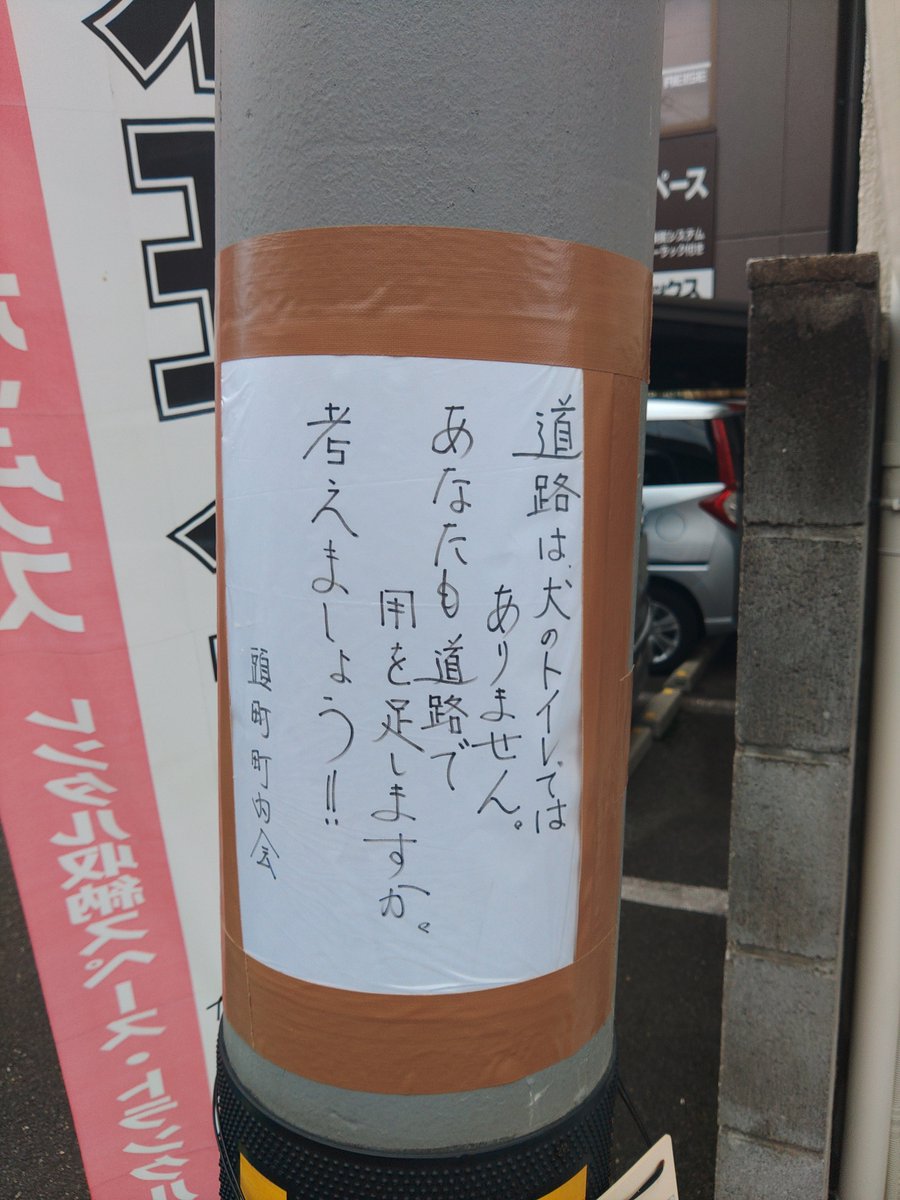 道路は、犬のトイレでは
ありません。
あなたも道路で
用を足しますか。
考えましょう!!
頭町町内会
レンタル収納スペース・トランク
ペース
システム
ラック付き
ックス